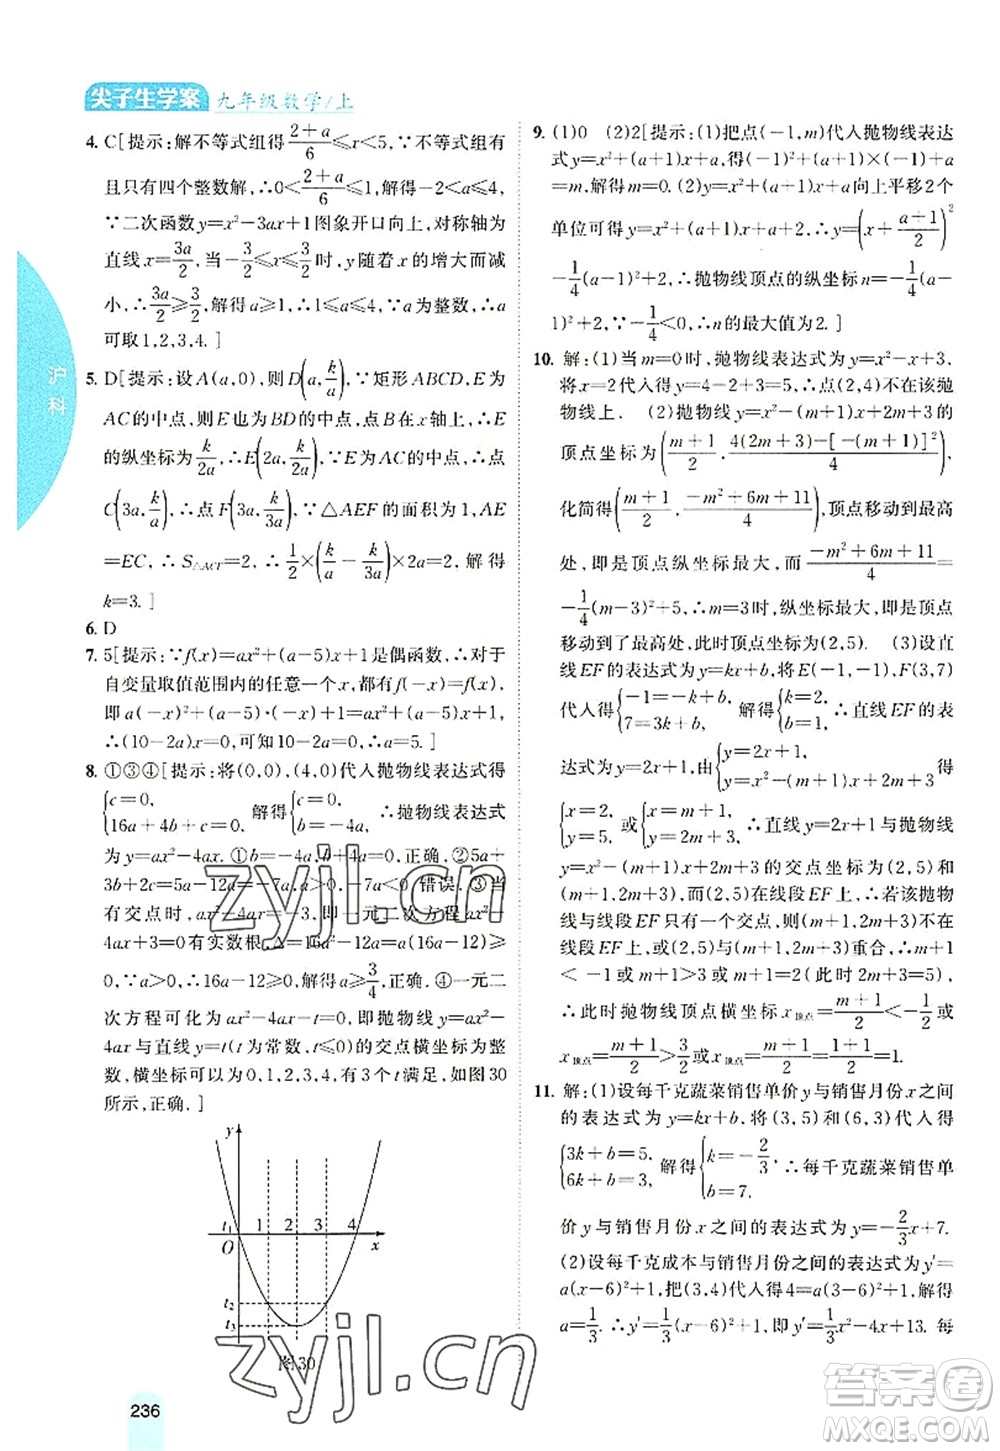 尖子生学案 九年级数学/上
4. C[提示:解不等式组得(2+a)/6≤x≤1,∵不等式组有
且只有四个整数解,∴0<(2+a)/6≤1,解得-2<a≤4,
∵二次函数y=x²-3ax+1图象开口向上,对称轴为
直线x=3a/2,当-3/2<x<3/2时,y随着x的增大而减
小,∴3a/2≥3/2,解得a≥1,∴1≤a≤4,∵a为整数,∴a
可取1,2,3,4.]
5. D[提示:设A(a,0),则D(a,k/a),∵矩形ABCD,E为
AC的中点,则E也为BD的中点,点B在x轴上,∴E
的纵坐标为k/2a,∴E(2a,k/2a),∵E为AC的中点,∴点
C(3a,k/a),∴点F(3a,k/3a),∵△AEF的面积为1,AE
=EC,∴S△ACF=2,∴1/2×(k/a-k/3a)×2a=2,解得
k=3.]
6. D
7. 5[提示:∵f(x)=ax²+(a-5)x+1是偶函数,∴对于
自变量取值范围内的任意一个x,都有f(-x)=f(x),
即a(-x)²+(a-5)·(-x)+1=ax²+(a-5)x+1,
∴(10-2a)x=0,可知10-2a=0,∴a=5.]
8. ①③④[提示:将(0,0),(4,0)代入抛物线表达式得
{c=0, 16a+4b+c=0, 解得{c=0, b=-4a, ∴抛物线表达式
为y=ax²-4ax.①b=-4a,c=0,正确.②5a+
3b+2c=5a-12a=-7a<0,错误.③当抛物线与直线y=-3
有交点时,ax²-4ax=-3,即一元二次方程ax²-
4ax+3=0有实数根,Δ=16a²-12a=a(16a-12)≥0,∵a
>0,∴16a-12≥0,解得a≥3/4,正确.④一元二
次方程可化为ax²-4ax-t=0,即抛物线y=ax²-
4ax与直线y=t(t为常数,t≤0)的交点横坐标为整
数,则横坐标为0,1,2,3,4时t满足,如图30
所示,正确.]
y
t₁ 1 2 3 4
O x
t₂
t₃
图30
236
9. (1)0 (2)2[提示:(1)把点(-1,m)代入抛物线表达
式y=x²+(a+1)x+a,得(-1)²+(a+1)×(-1)+a
=m,解得m=0.(2)y=x²+(a+1)x+a向上平移2个
单位可得y=x²+(a+1)x+a+2,∴y=(x+(a+1)/2)²
-1/4(a-1)²+2,∴抛物线顶点的纵坐标n=-1/4(a-
1)²+2,∵-1/4<0,∴n的最大值为2.]
10. 解:(1)当m=0时,抛物线表达式为y=x²-x+3,
将x=2代入得y=4-2+3=5,∴点(2,4)不在该抛
物线上. (2)抛物线y=x²-(m+1)x+2m+3的
顶点坐标为((m+1)/2,(4(2m+3)-[-(m+1)]²)/4),
化简得((m+1)/2,(-m²+6m+11)/4),顶点移动到最高
处,即是顶点纵坐标最大,而(-m²+6m+11)/4=
-1/4(m-3)²+5,∴m=3时,纵坐标最大,即是顶点
移动到了最高处,此时顶点坐标为(2,5). (3)设直
线EF的表达式为y=kx+b,将E(-1,-1),F(3,7)
代入得{-1=-k+b, 7=3k+b, 解得{k=2, b=1, ∴直线EF的表
达式为y=2x+1,由{y=2x+1, y=x²-(m+1)x+2m+3得
{x=2, y=5,或{x=m+1, y=2m+3,∴直线y=2x+1与抛物线
y=x²-(m+1)x+2m+3的交点坐标为(2,5)和
(m+1,2m+3),而(2,5)在线段EF上,∴若该抛物
线与线段EF只有一个交点,则(m+1,2m+3)不在
线段EF上,或(2,5)与(m+1,2m+3)重合,∴m+1
<-1或m+1>3或m+1=2(此时2m+3=5),
∴此时抛物线顶点横坐标x顶点=(m+1)/2<-1/2或
x顶点=(m+1)/2>3/2或x顶点=(m+1)/2=(1+1)/2=1.
11. 解:(1)设每千克蔬菜销售单价y与销售月份x之间
的表达式为y=kx+b,将(3,5)和(6,3)代入得
{3k+b=5, 6k+b=3,解得{k=-2/3, b=7. ∴每千克蔬菜销售单
价y与销售月份x之间的表达式为y=-2/3x+7.
(2)设每千克成本与销售月份之间的表达式为y′=
a(x-6)²+1,把(3,4)代入得4=a(3-6)²+1,解得
a=1/3.∴y′=1/3(x-6)²+1,即y′=1/3x²-4x+13. 每
沪科
zyjl.cn
zyjl.cn
答案圈
MXQE.COM